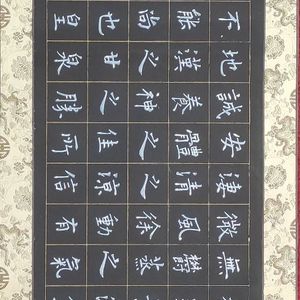 無鬱蒸之氣
微風徐動有
淒清之涼信
安體之佳所
誠養神之勝
地漢之甘泉
不能尚也皇